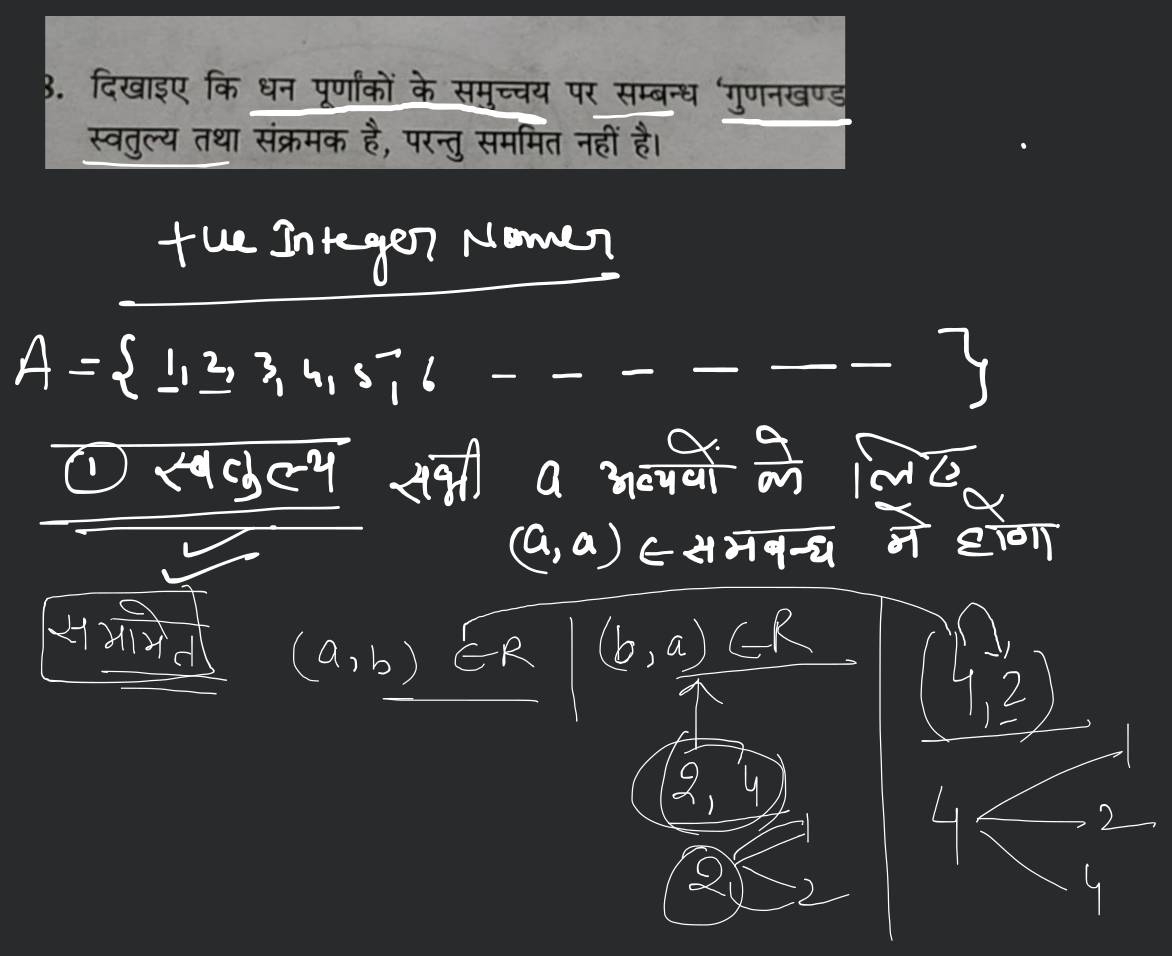 3. दिखाइए कि धन पूर्णांकों के समुच्चय पर सम्बन्ध ‘गुणनखण्ड
स्वतुल्य तथा संक्रमक है, परन्तु सममित नहीं है।
+ve Integer
A = { 1, 2, 3, 4, 5, 6 - - - - - - }
① स्वतुल्य सभी a अवयवों के लिए
(a, a) ∈ समबन्ध में होगा
सममित (a, b) ∈ R | (b, a) ∈ R
(4, 2)
2, 4
4 1 2 4
2 1 2